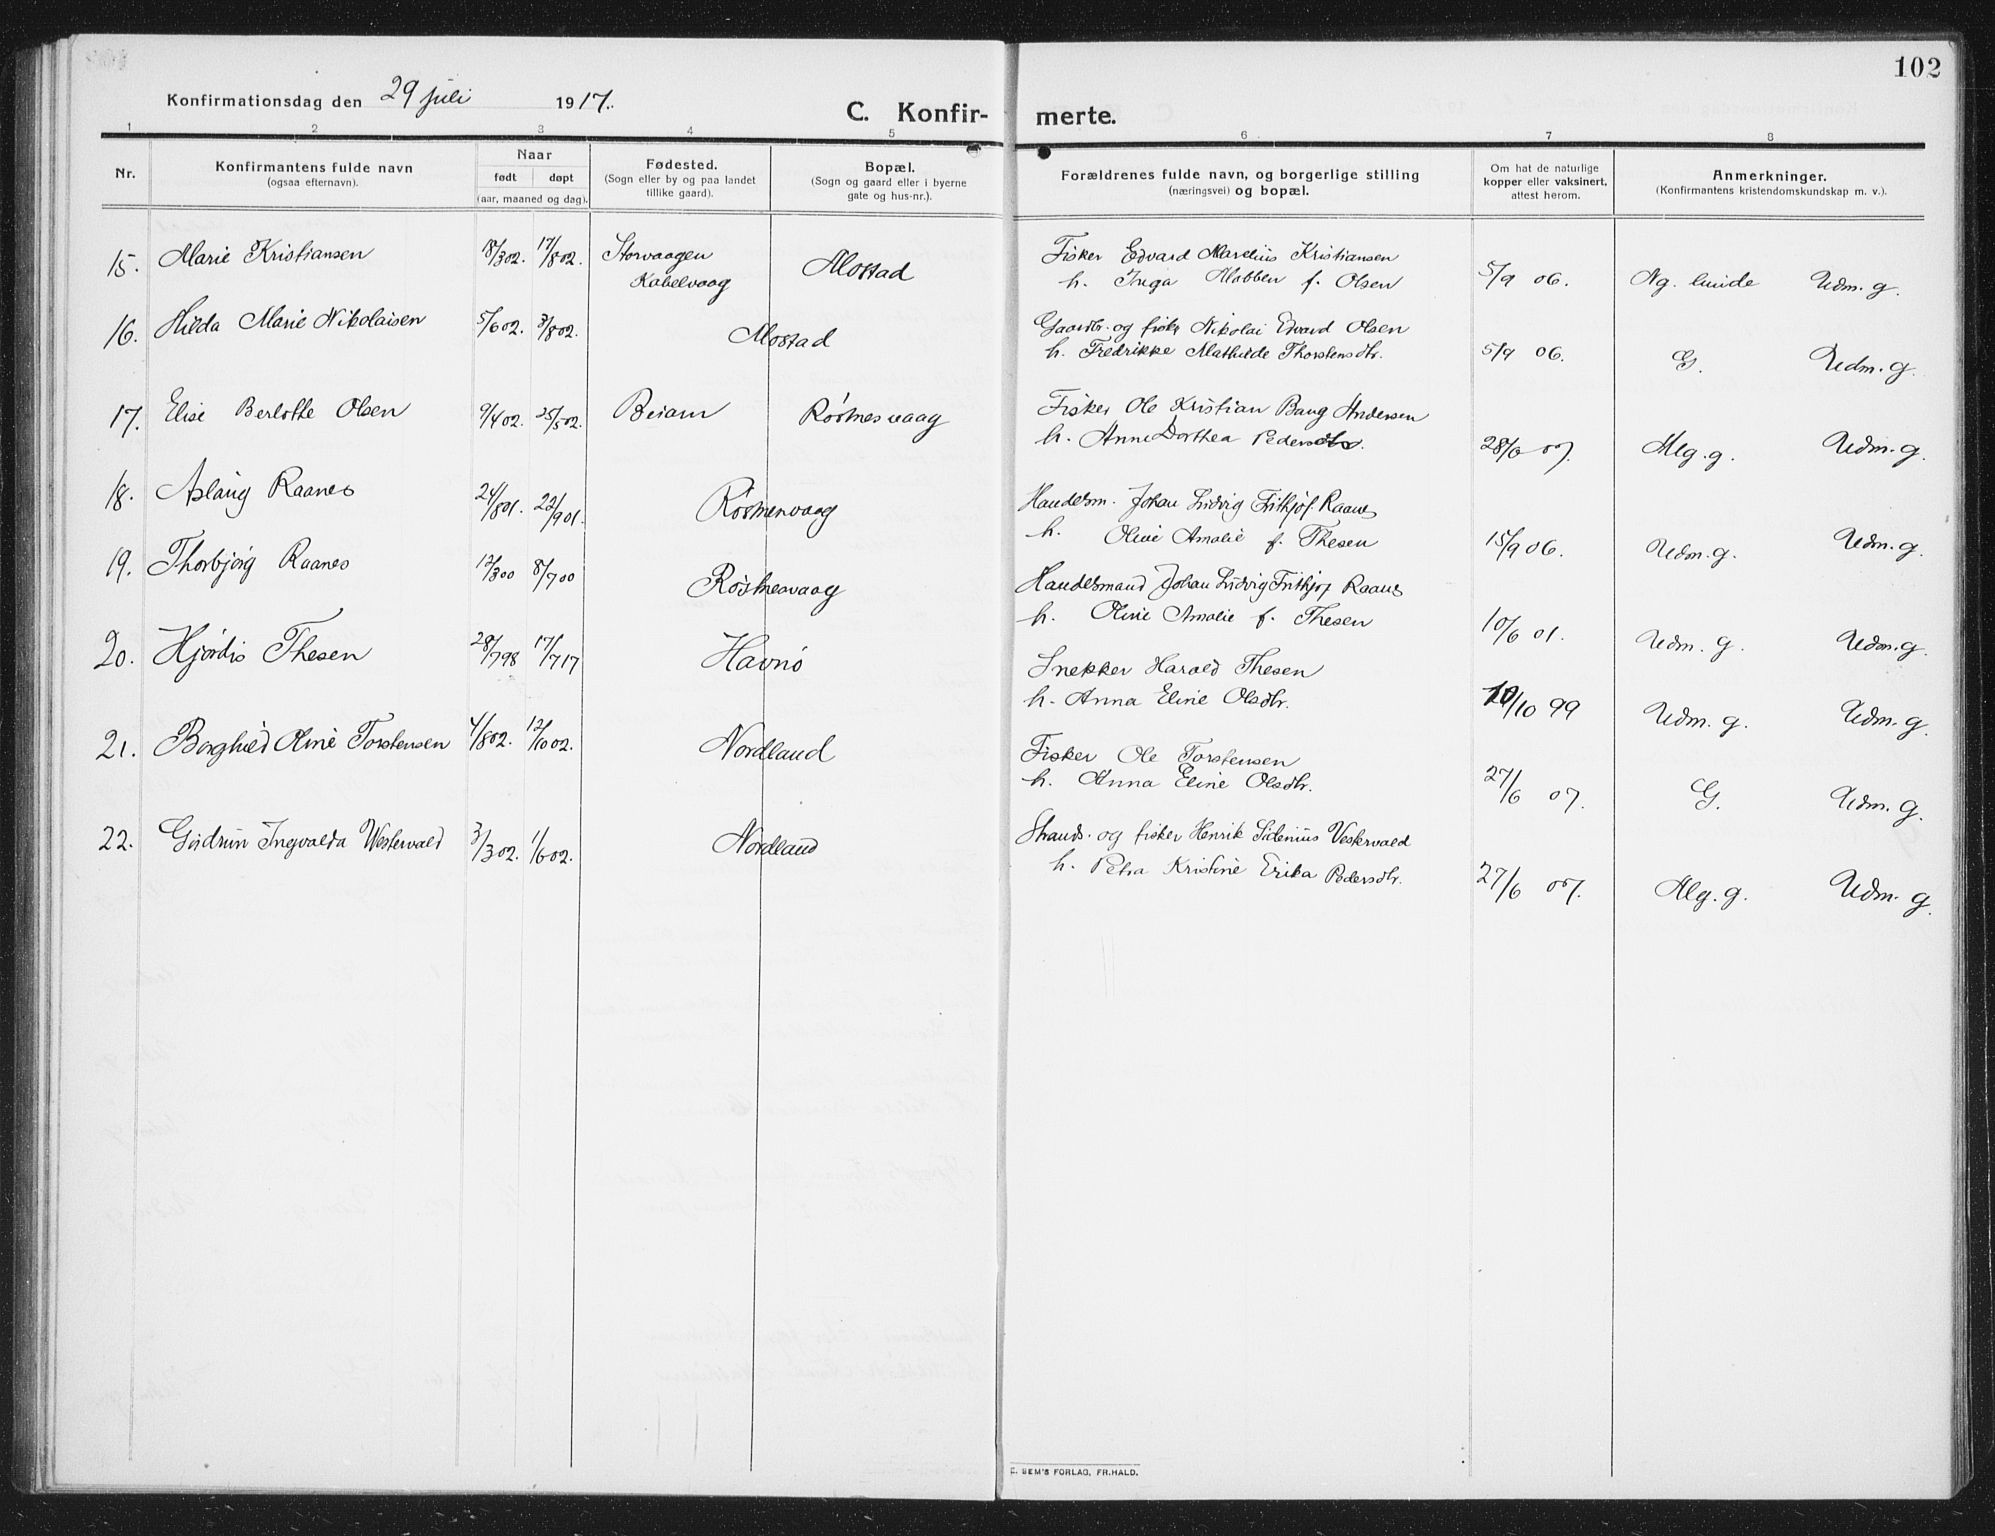 102
Konfirmationsdag den 29 juli 1917.
C. Konfir- merte.
1 2 3 4 5 6 7 8
Nr.
Konfirmantens fulde navn
(ogsaa efternavn).
Naar
født døpt
(aar, maaned og dag).
Fødested.
(Sogn eller by og paa landet
tillike gaard).
Bopæl.
(Sogn og gaard eller i byerne
gate og hus-nr.).
Forældrenes fulde navn, og borgerlige stilling
(næringsvei) og bopæl.
Om hat de naturlige
kopper eller vaksinert,
attest herom.
Anmerkninger.
(Konfirmantens kristendomskundskap m. v.).
15. Marie Kristiansen 18/3 02. 17/8 02. Storvaagen Kabelvaag Mostad
Fisker Edvard Marelius Kristiansen
h. Inga f. Olsen 5/9 06. Ng. Udm. g.
16. Hilda Marie Nikolaisen 5/6 02. 3/8 02. Mostad
Gaardbr. og fisker Nikolai Edvard Olsen
h. Fredrikke Mathilde Thorstensdtr. 5/9 06. G. Udm. g.
17. Elise Berlotte Olsen 9/4 02. 25/5 02. Beiarn Røstnesvaag
Fisker Ole Kristian Bang Andersen
h. Anne Dorthea Pedersdtr. 28/6 07. Mg. g. Udm. g.
18. Aslaug Raanes 24/8 01. 22/9 01. Røstnesvaag
Handelsm. Johan Ludvig Frithjof Raanes
h. Oline Amalie f. Thesen 15/9 06. Udm. g. Udm. g.
19. Thorbjørg Raanes 12/3 00 8/7 00 Røstnesvaag
Handelsmand Johan Ludvig Frithjof Raanes
h. Oline Amalie f. Thesen 10/6 01. Udm. g. Udm. g.
20. Hjørdis Thesen 28/7 98 17/7 17 Havnø
Snekker Harald Thesen
h. Anna Eline Olsdtr. 10/10 99 Udm. g. Udm. g.
21. Borghild Oline Torstensen 4/8 02. 12/10 02. Nordland
Fisker Ole Torstensen
h. Anna Eline Olsdtr. 27/6 07. G. Udm. g.
22. Gudrun Ingvalda Westervald 3/3 02. 1/6 02. Nordland
Strands. og fisker Henrik Sidenius Vestervald
h. Petra Kristine Erika Pedersdtr. 27/6 07. Mg. g. Udm. g.
E. SEM'S FORLAG, FR.HALD.